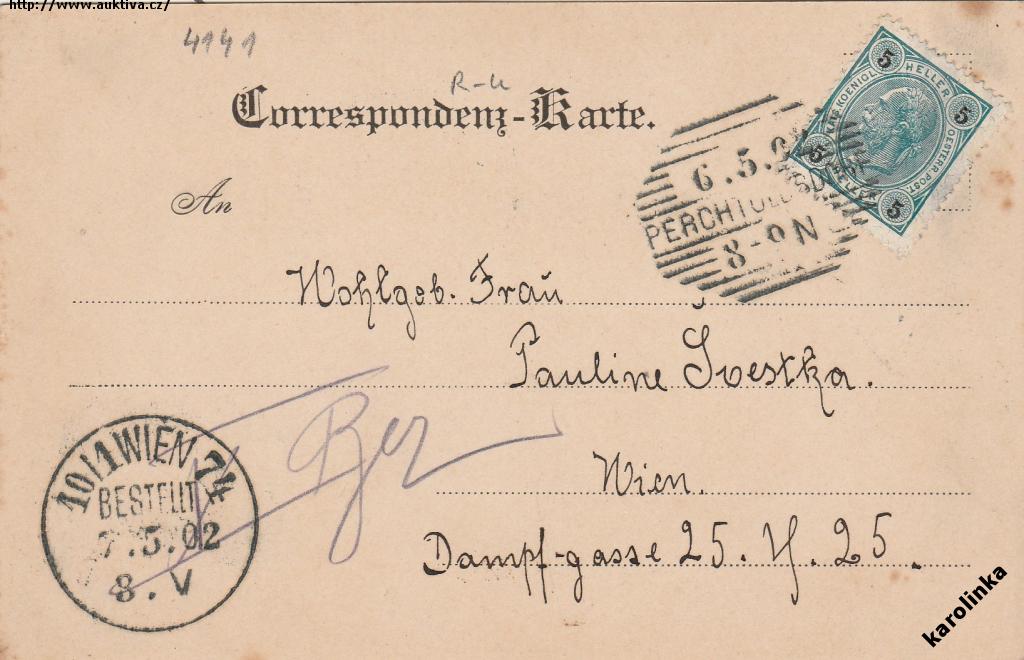 http://www.auktiva.cz/
4141
R-u
Correspondenz-Karte.
5 HELLER 5
KAIS KOENIGL
OESTERR. POST.
5 5
6.5.02
PERCHTOLDSDORF
8-9N
An
Wohlgeb. Frau
Pauline Švestka.
Wien.
Dampf-gasse 25. H. 25.
10/1 WIEN 74
BESTELLT
7.5.02
8.V
karolinka